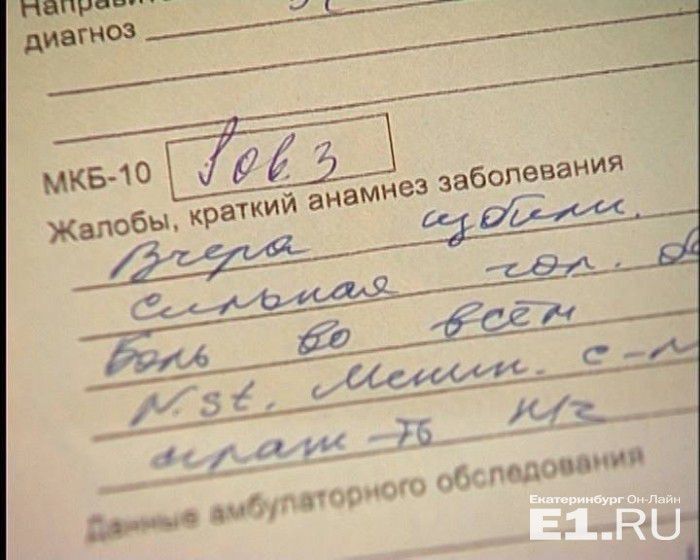 Направи
диагноз
МКБ-10 S06.3
Жалобы, краткий анамнез заболевания
Вчера избили.
Сильная гол.
боль во всём
N.st. Менин. с-м
Данные амбулаторного обследования
Екатеринбург Он-Лайн
E1.RU